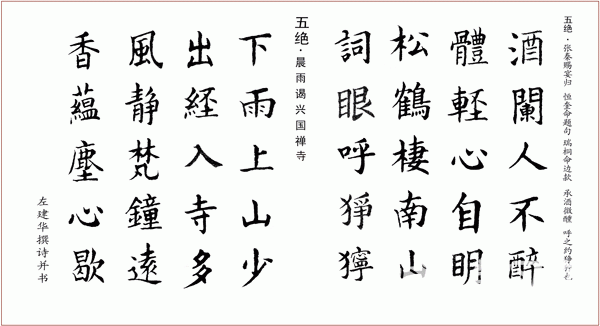 五绝·张秦赐宴归 恒奎命题句 瑞桐命边款 承酒微醺 呼之约
酒闌人不醉
體軽心自眀
松鶴棲南山
詞眼呼猙獰
五绝·晨雨谒兴国禅寺
下雨上山少
出経入寺多
風静梵鐘遠
香蘊塵心歇
左建华撰诗并书